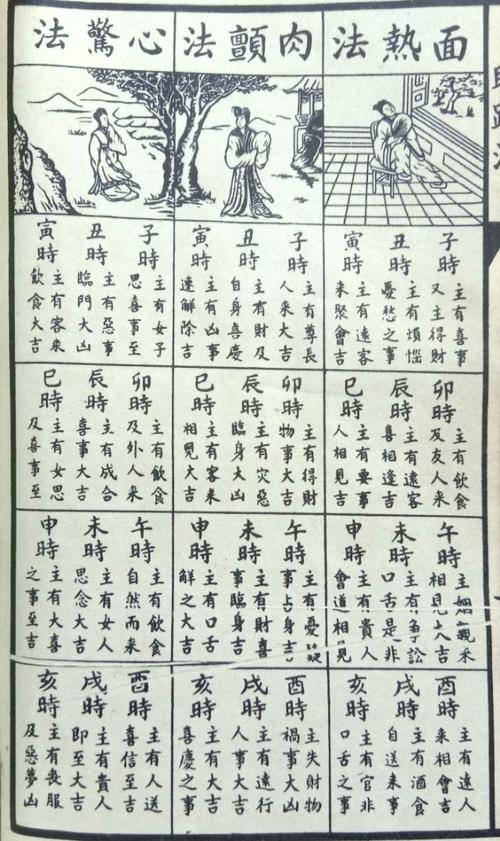 面熱法
子時
主有喜事
又主得財
丑時
主有煩惱
憂愁之事
寅時
主有遠客
来聚會吉
卯時
主有飲食
及友人来
辰時
主有遠客
喜相逢吉
巳時
主有要事
人相見吉
午時
主姻親来
相見大吉
未時
主有爭訟
口舌是非
申時
主有貴人
會道相見
酉時
主有遠人
来相會吉
戌時
主有酒食
自送来事
亥時
主有官非
口舌之事
肉顫法
子時
主有尊長
人来大吉
丑時
主有財及
自身喜慶
寅時
主有凶事
速解除吉
卯時
主有得財
物事大吉
辰時
主有灾惡
臨身大凶
巳時
主有客来
相見大吉
午時
主有憂疑
事占身吉
未時
主有財喜
事臨身吉
申時
主有口舌
解之大吉
酉時
主失財物
禍事大凶
戌時
主有遠行
人事大吉
亥時
主有大吉
喜慶之事
心驚法
子時
主有女子
思喜事至
丑時
主有惡事
臨門大凶
寅時
主有客来
飲食大吉
卯時
主有飲食
及外人来
辰時
主有成合
喜事大吉
巳時
主有女思
及喜事至
午時
主有飲食
自然而来
未時
主有女人
思念大吉
申時
主有大喜
之事至吉
酉時
主有人送
喜信至吉
戌時
主有貴人
即至大吉
亥時
主有喪服
及惡夢凶